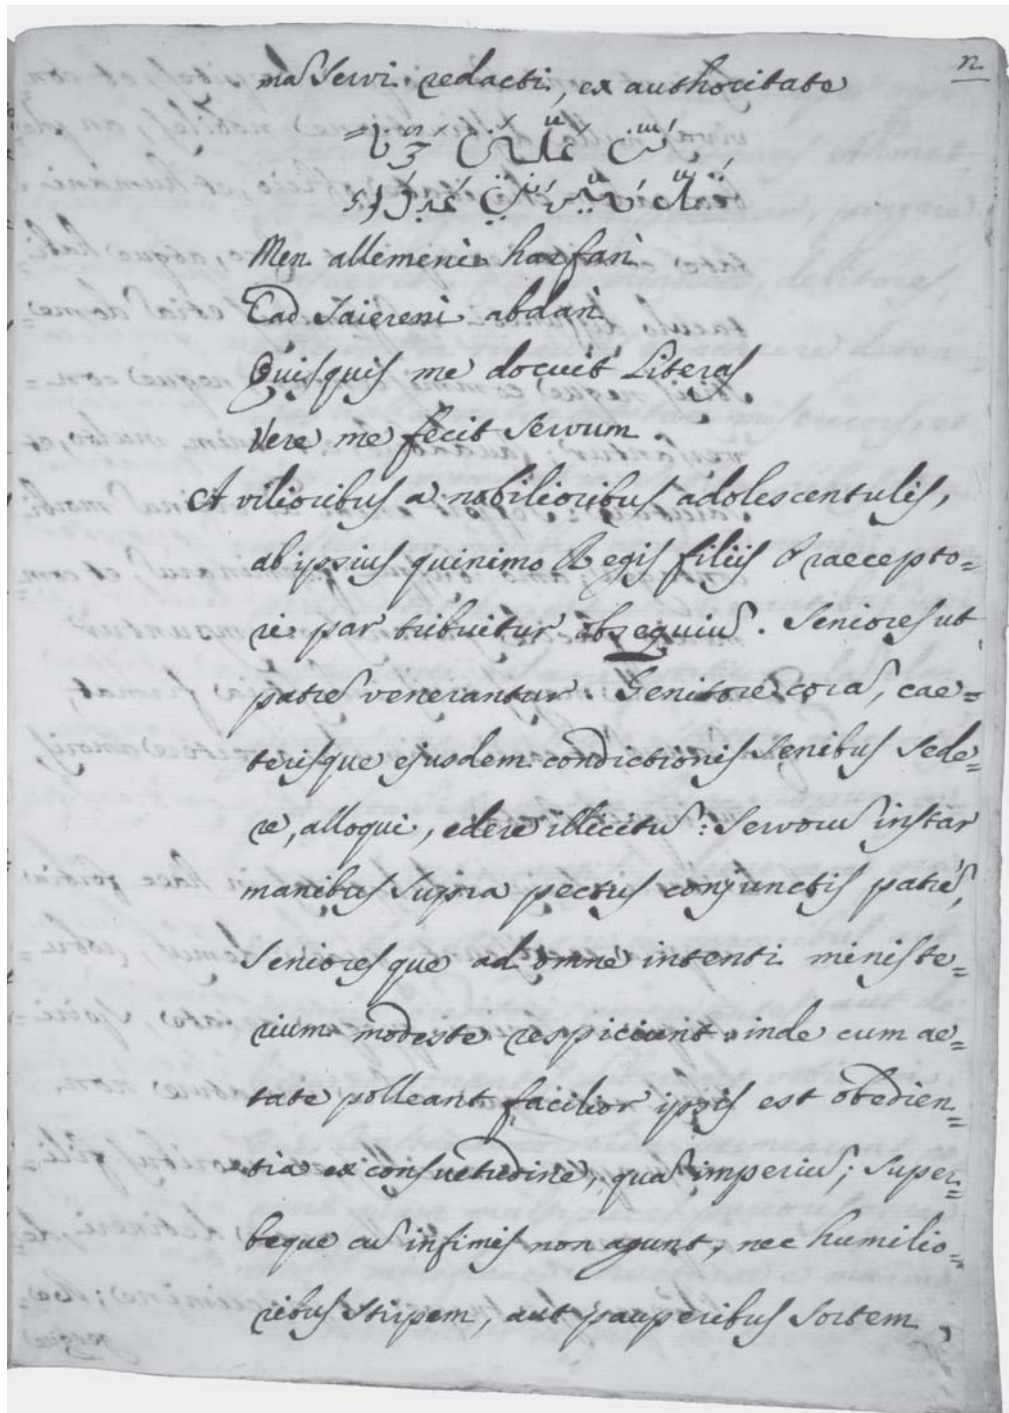 n.
ma servi redacti, ex authoritate
مَن عَلَّمَني حَرفًا =
قَد صَيَّرَني عَبدًا
Men allemeni harfan
Cad saiereni abdan
Quisquis me docuit Literas
Vere me fecit servum.
A vilioribus a nobilioribus adolescentulis,
ab ipsius quinimo Regis filiis Praecepto=
ri par tribuitur obsequiu̅. Seniores ut
patre̅ venerantur. Genitore cora̅, cae=
terisque ejusdem condictionis senibus sede=
re, alloqui, edere illicitu̅: servoru̅ instar
manibus supra pectus conjunctis patre̅,
senioresque ad omne intenti ministe=
rium modeste respiciunt. inde cum ae=
tate polleant facilior ipsis est obedien=
tia ex consuetudine, qua̅ imperiu̅; super=
beque cu̅ infimis non agunt, nec humilio=
ribus stirpem, aut pauperibus sortem,